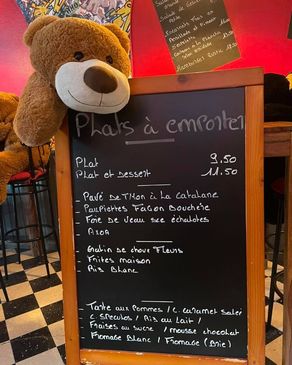 Plats à emporter
Plat 9.50
Plat et Dessert 11.50
- Pavé De Thon à La Catalane
- Paupiettes Façon Bouchère
- Foie de Veau sce échalotes
- Axoa
- Gratin de choux Fleurs
- Frites maison
- Ris Blanc
- Tarte aux Pommes / C. caramel salé
C. Speculos / Ris au lait /
Fraises au sucre / mousse chocolat
Fromage Blanc / Fromage (Brie)